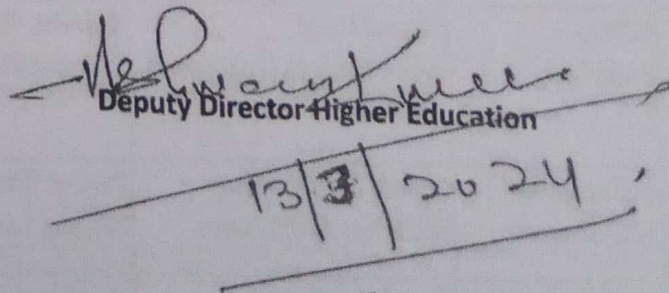 Deputy Director Higher Education
13/3/2024